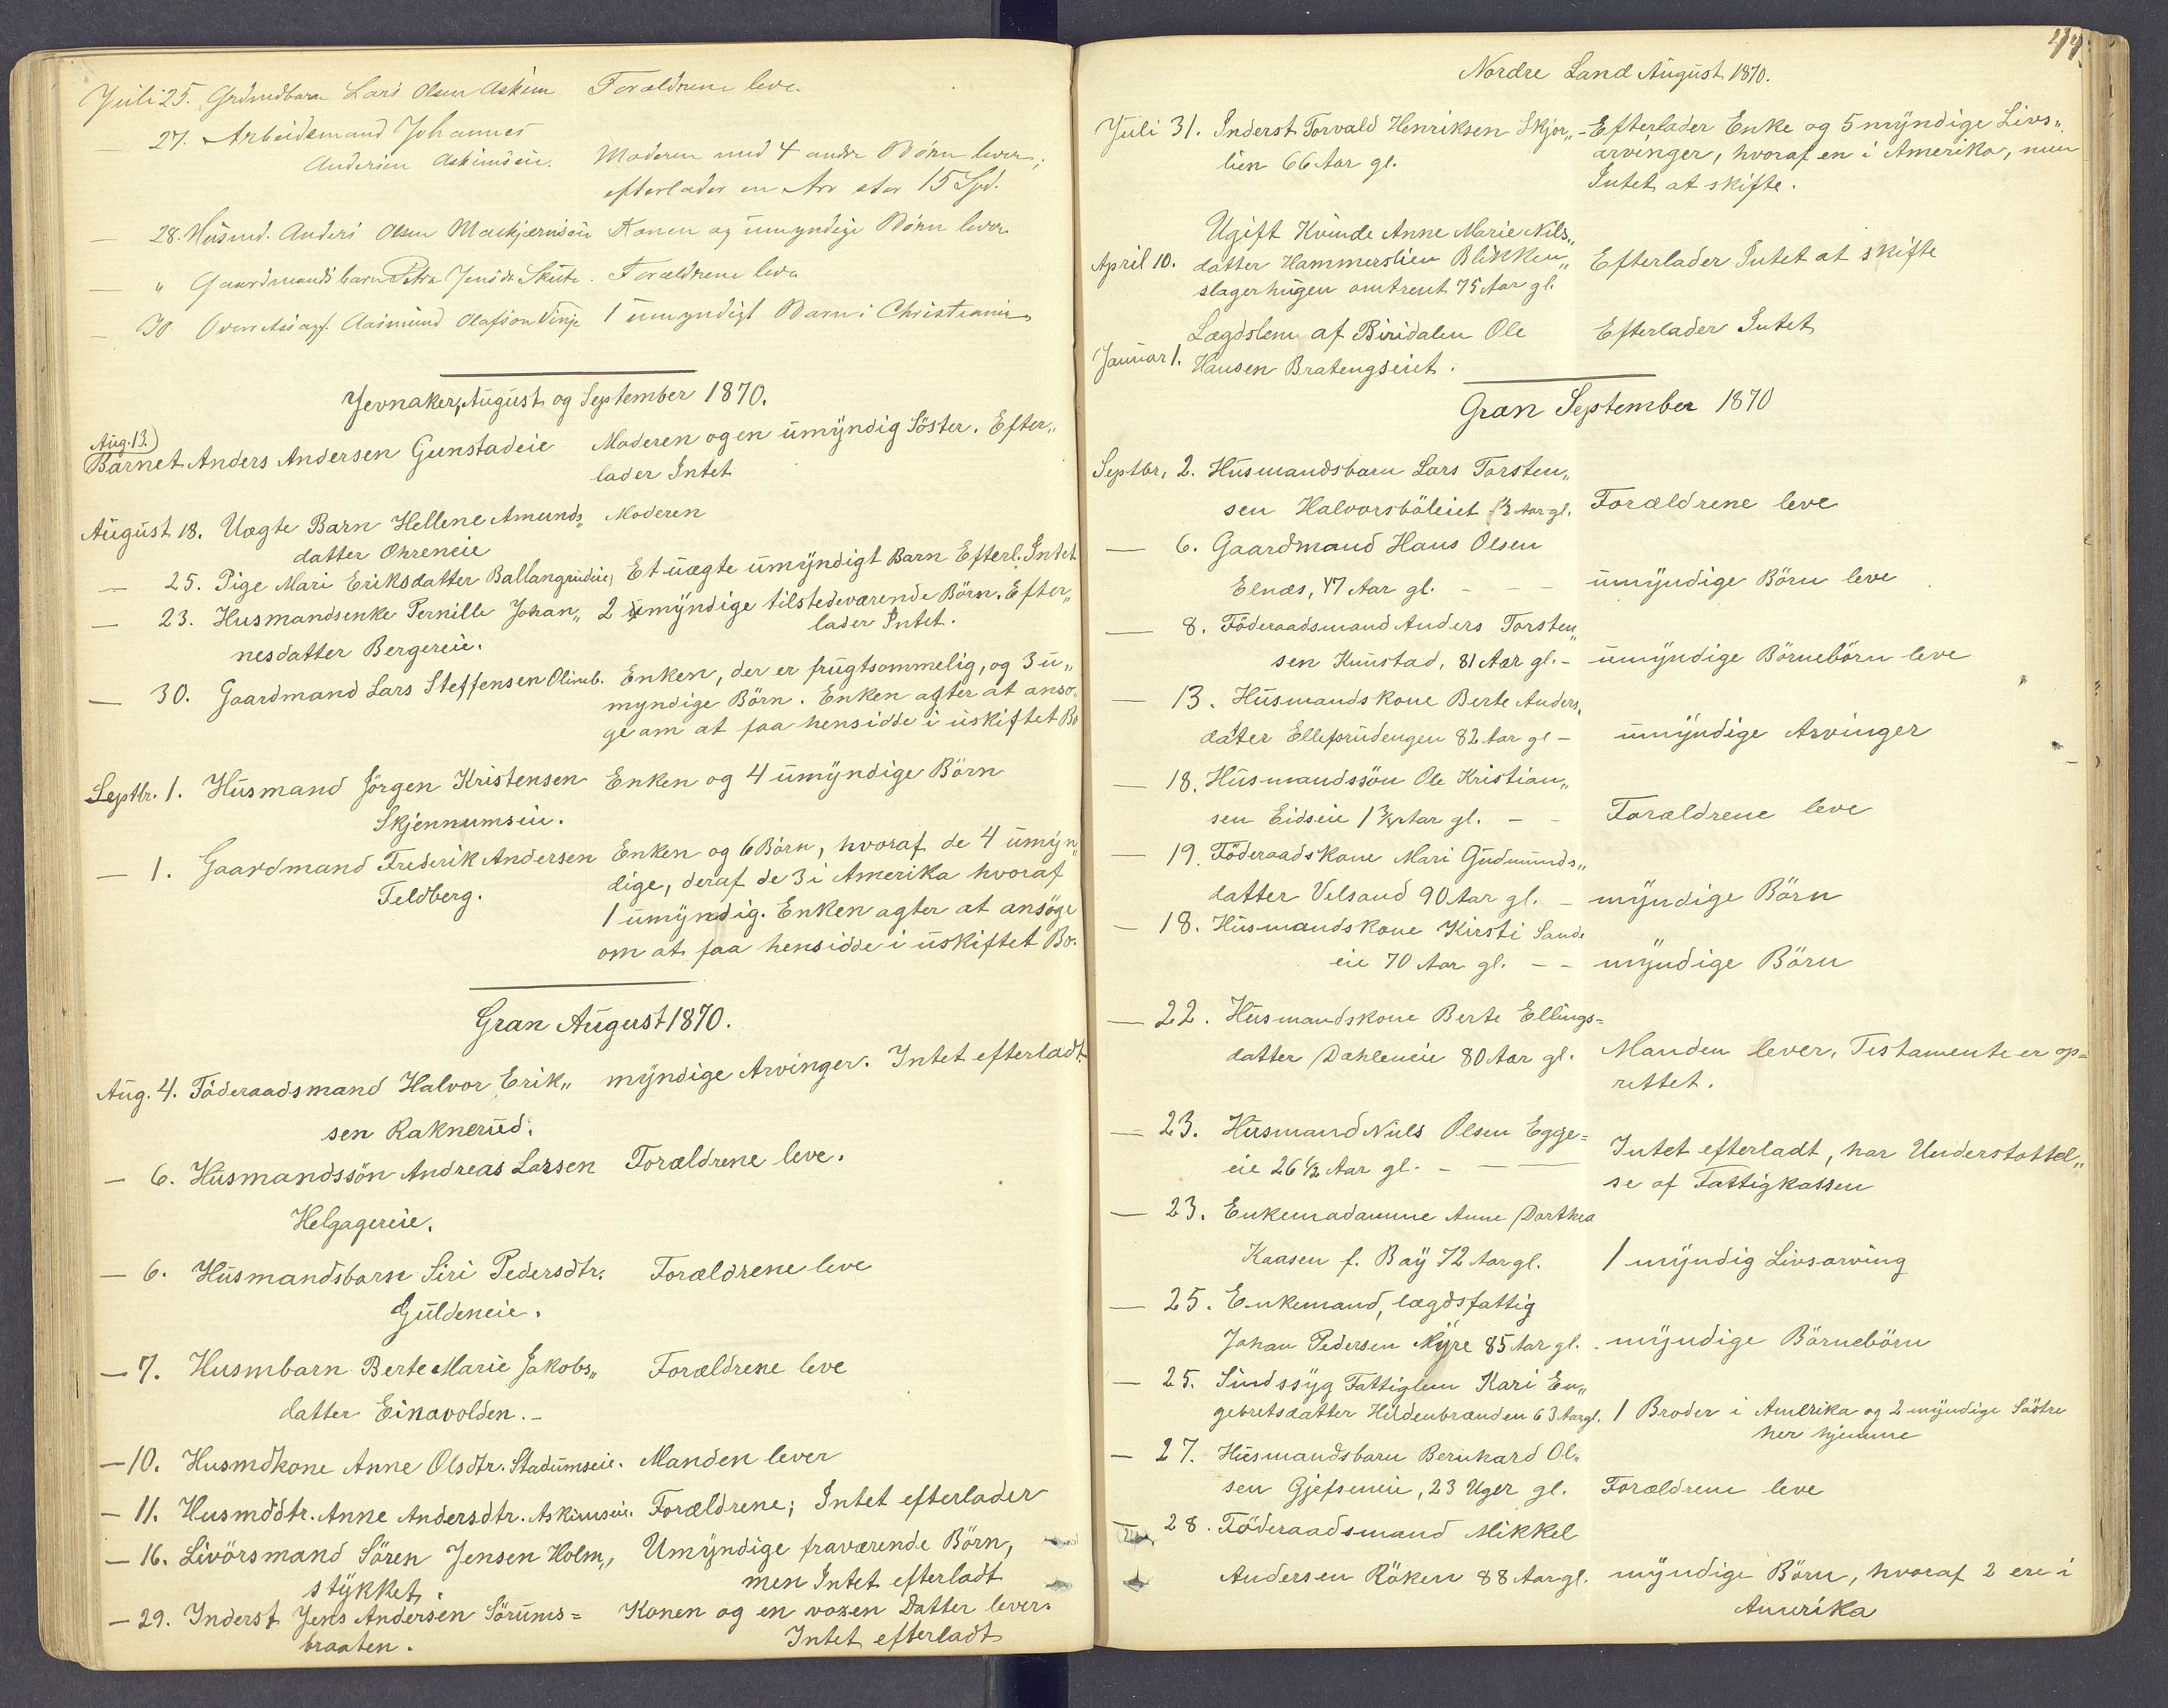 Juli 25. Grdmdbarn Lars Olsen Askim Forældrene leve.
— 27. Arbeidsmand Johannes
Andersen Askimseie. Moderen med 4 andre Børn lever;
efterlader en Arv stor 15 Spd.
— 28. Husmd. Anders Olsen Konen og umyndige Børn lever
— " Gaardmands barn Petra Jensdr Skute. Forældrene leve
— 30 Aasmund Olafson Vinje 1 umyndigt Barn i Christiania
Jevnaker, August og September 1870.
Aug. 13.)
Barnet Anders Andersen Gunstadeie Moderen og en umyndig Söster. Efter„
lader Intet
August 18. Uægte Barn Hellene Amunds„ Moderen
datter Ohreneie
— 25. Pige Mari Eriksdatter Ballangrudeie, Et uægte umyndigt Barn Efterl. Intet
— 23. Husmandsenke Pernille Johan„ 2 umyndige tilstedeværende Börn. Efter„
nesdatter Bergereie. lader Intet.
— 30. Gaardmand Lars Steffensen Olimb. Enken, der er frugtsommelig, og 3 u„
myndige Börn. Enken agter at ansö„
ge om at faa hensidde i uskiftet Bo
Septbr. 1. Husmand Jörgen Kristensen Enken og 4 umyndige Börn
Skjennumseie.
— 1. Gaardmand Frederik Andersen Enken og 6 Börn, hvoraf de 4 umyn„
Feldberg. dige, deraf de 3 i Amerika hvoraf
1 umyndig. Enken agter at ansöge
om at faa hensidde i uskiftet Bo.
Gran August 1870.
Aug. 4. Föderaadsmand Halvor Erik„ myndige Arvinger. Intet efterladt.
sen Raknerud.
— 6. Husmandssön Andreas Larsen Forældrene leve.
Helgagereie.
— 6. Husmandsbarn Siri Pedersdtr. Forældrene leve
Guldeneie.
— 7. Husmbarn Berte Marie Jakobs„ Forældrene leve
datter Einavolden. –
— 10. Husmdkone Anne Olsdtr. Stadumseie. Manden lever
— 11. Husmddtr. Anne Andersdtr. Askimseie. Forældrene; Intet efterlader
— 16. Livörsmand Sören Jensen Holm„ Umyndige fraværende Börn,
stykket. men Intet efterladt
— 29. Inderst Jens Andersen Sörums= Konen og en voxen Datter lever.
braaten. Intet efterladt
Nordre Land August 1870.
Juli 31. Inderst Torvald Henriksen Skjor„ – Efterlader Enke og 5 myndige Livs„
lien 66 Aar gl. arvinger, hvoraf en i Amerika, men
Intet at skifte.
Ugift Kvinde Anne Marie Nils„
April 10. datter Hammerslien Blikken„ Efterlader Intet at skifte
slagerhugen omtrent 75 Aar gl.
Lægdslem af Biridalen Ole Efterlader Intet
Januar 1. Hansen Bratengseiet.
Gran September 1870
Septbr. 2. Husmandsbarn Lars Torsten„
sen Halvorsböleiet ½ Aar gl. Forældrene leve
— 6. Gaardmand Hans Olsen
Elnæs, 47 Aar gl. – – – umyndige Börn leve
— 8. Föderaadsmand Anders Torsten„
sen Kunstad, 81 Aar gl. – umyndige Börnebörn leve
— 13. Husmandskone Berte Anders„
datter Elleprudengen 82 Aar gl – umyndige Arvinger
— 18. Husmandssön Ole Kristian„
sen Eidseie 1¾ Aar gl. – – Forældrene leve
— 19. Föderaadskone Mari Gudmunds„
datter Velsand 90 Aar gl. – myndige Börn
— 18. Husmandskone Kirsti Sands
eie 70 Aar gl. – – myndige Börn
— 22. Husmandskone Berte Ellings=
datter Dæhleneie 80 Aar gl. Manden lever, Testamente er op=
rettet.
— 23. Husmand Niels Olsen Egge=
eie 26½ Aar gl. – – — Intet efterladt, har Understöttel„
se af Fattigkassen
— 23. Enkemadamme Anne Dorthea
Kaasen f. Bay 72 Aar gl. 1 myndig Livsarving
— 25. Enkemand, lægdsfattig
Johan Pedersen Myre 85 Aar gl. . myndige Börnebörn
— 25. Sindssyg Fattiglem Kari En„
gebretsdatter Hildenbranden 63 Aar gl. 1 Broder i Amerika og 2 myndige Söstre
her hjemme
— 27. Husmandsbarn Bernhard Ol„
sen Gjefseneie, 23 Uger gl. Forældrene leve
— 28. Föderaadsmand Mikkel
Andersen Röken 88 Aar gl. myndige Börn, hvoraf 2 ere i
Amerika